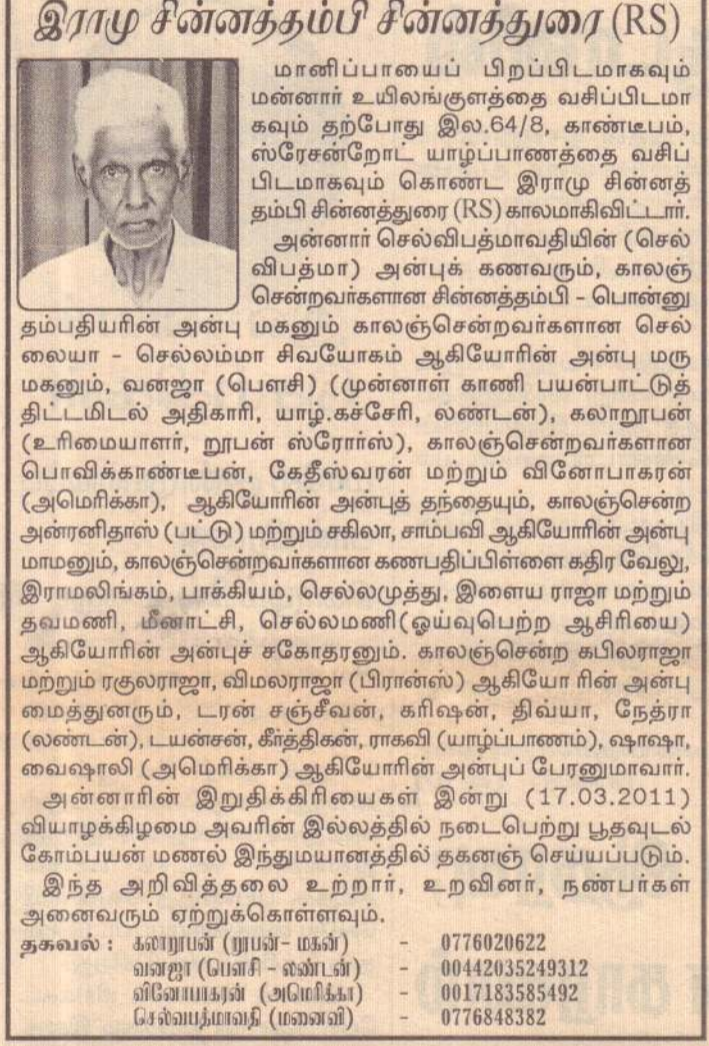 இராமு சின்னத்தம்பி சின்னத்துரை (RS)
மானிப்பாயைப் பிறப்பிடமாகவும்
மன்னார் உயிலங்குளத்தை வசிப்பிடமா
கவும் தற்போது இல.64/8, காண்டீபம்,
ஸ்ரேசன்றோட் யாழ்ப்பாணத்தை வசிப்
பிடமாகவும் கொண்ட இராமு சின்னத்
தம்பி சின்னத்துரை (RS) காலமாகிவிட்டார்.
அன்னார் செல்விபத்மாவதியின் (செல்
விபத்மா) அன்புக் கணவரும், காலஞ்
சென்றவர்களான சின்னத்தம்பி - பொன்னு
தம்பதியரின் அன்பு மகனும் காலஞ்சென்றவர்களான செல்
லையா - செல்லம்மா சிவயோகம் ஆகியோரின் அன்பு மரு
மகனும், வனஜா (பௌசி) (முன்னாள் காணி பயன்பாட்டுத்
திட்டமிடல் அதிகாரி, யாழ்.கச்சேரி, லண்டன்), கலாறூபன்
(உரிமையாளர், றூபன் ஸ்ரோர்ஸ்), காலஞ்சென்றவர்களான
பொவிக்காண்டீபன், கேதீஸ்வரன் மற்றும் வினோபாகரன்
(அமெரிக்கா), ஆகியோரின் அன்புத் தந்தையும், காலஞ்சென்ற
அன்ரனிதாஸ் (பட்டு) மற்றும் சகிலா, சாம்பவி ஆகியோரின் அன்பு
மாமனும், காலஞ்சென்றவர்களான கணபதிப்பிள்ளை கதிர வேலு,
இராமலிங்கம், பாக்கியம், செல்லமுத்து, இளைய ராஜா மற்றும்
தவமணி, மீனாட்சி, செல்லமணி(ஓய்வுபெற்ற ஆசிரியை)
ஆகியோரின் அன்புச் சகோதரனும். காலஞ்சென்ற கபிலராஜா
மற்றும் ரகுலராஜா, விமலராஜா (பிரான்ஸ்) ஆகியோ ரின் அன்பு
மைத்துனரும், டரன் சஞ்சீவன், கரிஷன், திவ்யா, நேத்ரா
(லண்டன்), டயன்சன், கீர்த்திகன், ராகவி (யாழ்ப்பாணம்), ஷாஷா,
வைஷாலி (அமெரிக்கா) ஆகியோரின் அன்புப் பேரனுமாவார்.
அன்னாரின் இறுதிக்கிரியைகள் இன்று (17.03.2011)
வியாழக்கிழமை அவரின் இல்லத்தில் நடைபெற்று பூதவுடல்
கோம்பயன் மணல் இந்துமயானத்தில் தகனஞ் செய்யப்படும்.
இந்த அறிவித்தலை உற்றார், உறவினர், நண்பர்கள்
அனைவரும் ஏற்றுக்கொள்ளவும்.
தகவல் : கலாறூபன் (றூபன்- மகன்) - 0776020622
வனஜா (பௌசி - லண்டன்) - 00442035249312
வினோபாகரன் (அமெரிக்கா) - 0017183585492
செல்வபத்மாவதி (மனைவி) - 0776848382